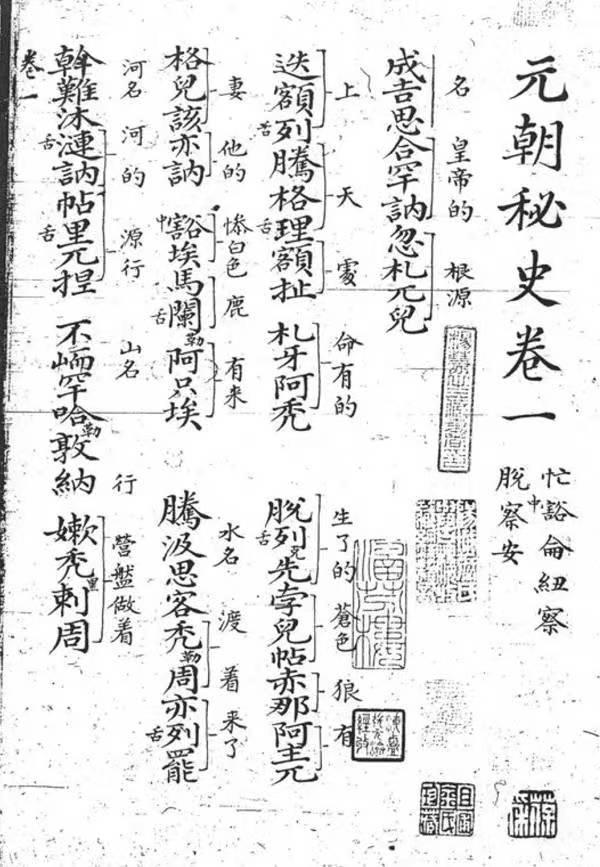 元朝秘史卷一
忙豁侖紐察
脫中察安
名 皇帝的 根源
成吉思合罕訥忽札兀兒
上 天 處 命有的 生了的 蒼色 狼 有
迭額舌列騰格舌理額扯 札牙阿禿 脫舌列克先孛兒帖赤那阿主兀
妻 他的 慘白色 鹿 有来 水名 渡着 来了
格兒該亦訥 中豁埃馬舌闌勒阿只埃 騰汲思客禿勒周亦舌列罷
河名 河的 源行 山名 行 營盤做着
斡難沐舌漣訥帖舌里兀揑 不峏罕哈勒敦納 嫩禿黑剌周
卷一